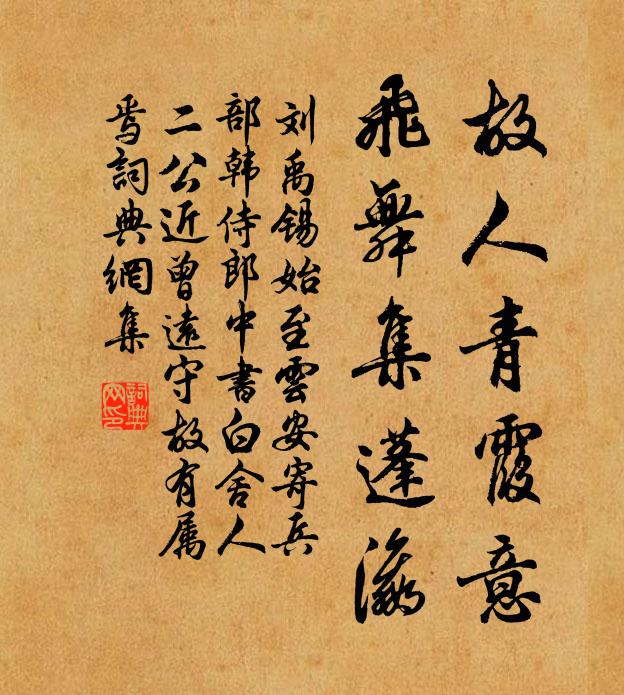 故人青霞意
飛舞集蓬瀛
刘禹錫始至雲安寄兵
部韩侍郎中書白舍人
二公近曾遠守故有属
焉詞典網集
詞典
网印